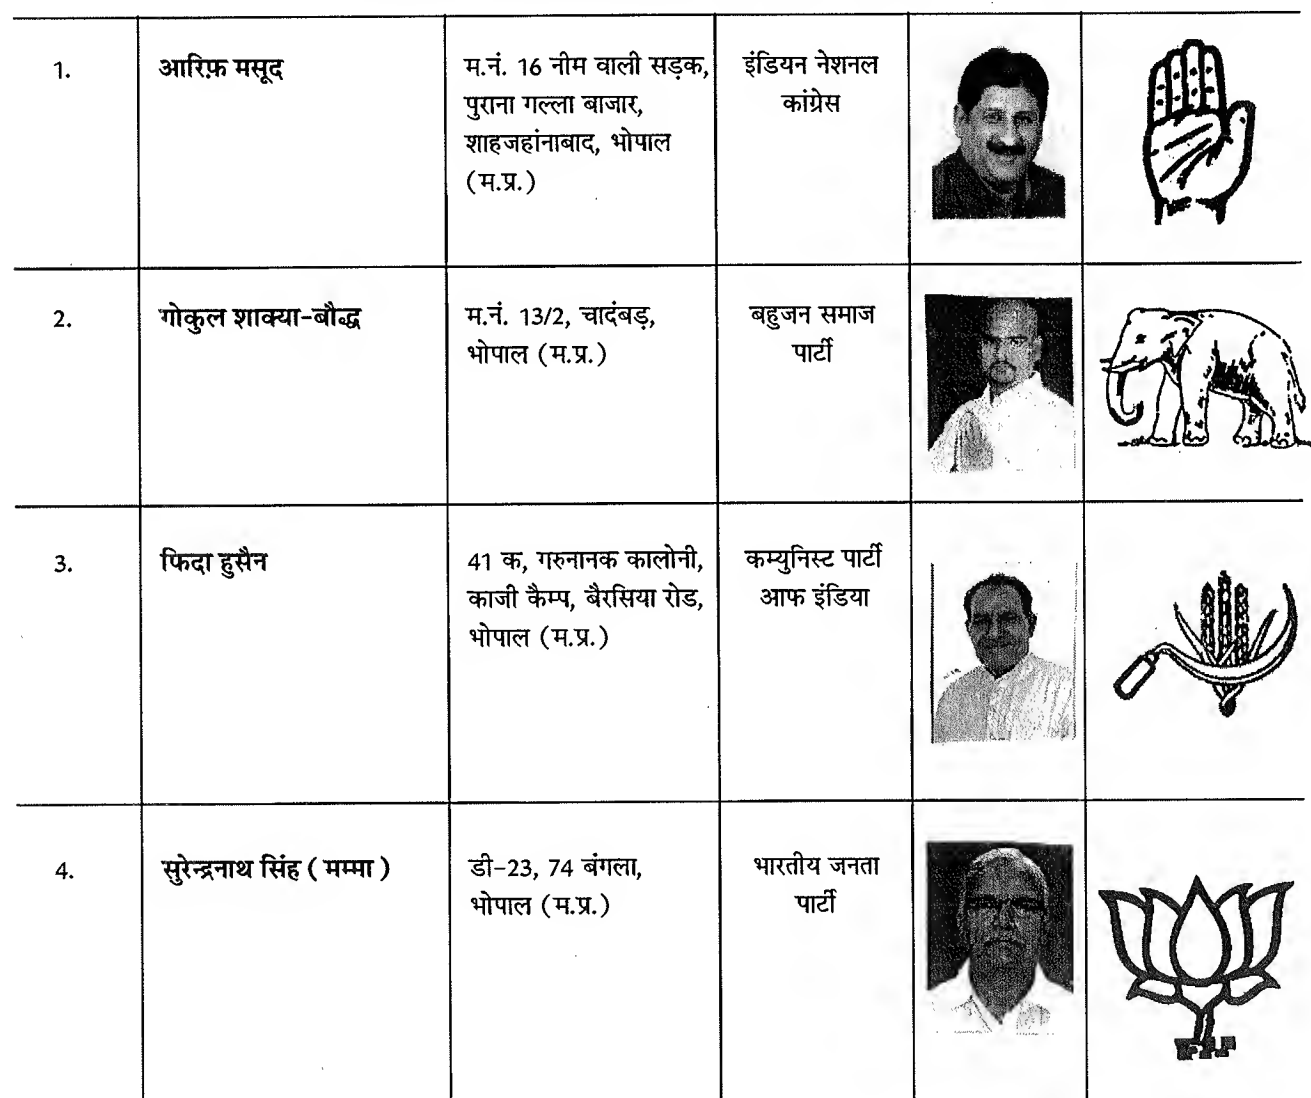 1.
आरिफ़ मसूद
म.नं. 16 नीम वाली सड़क,
पुराना गल्ला बाजार,
शाहजहांनाबाद, भोपाल
(म.प्र.)
इंडियन नेशनल
कांग्रेस
2.
गोकुल शाक्या-बौद्ध
म.नं. 13/2, चादंबड़,
भोपाल (म.प्र.)
बहुजन समाज
पार्टी
3.
फिदा हुसैन
41 क, गरुनानक कालोनी,
काजी कैम्प, बैरसिया रोड,
भोपाल (म.प्र.)
कम्युनिस्ट पार्टी
आफ इंडिया
4.
सुरेन्द्रनाथ सिंह ( मम्मा )
डी-23, 74 बंगला,
भोपाल (म.प्र.)
भारतीय जनता
पार्टी